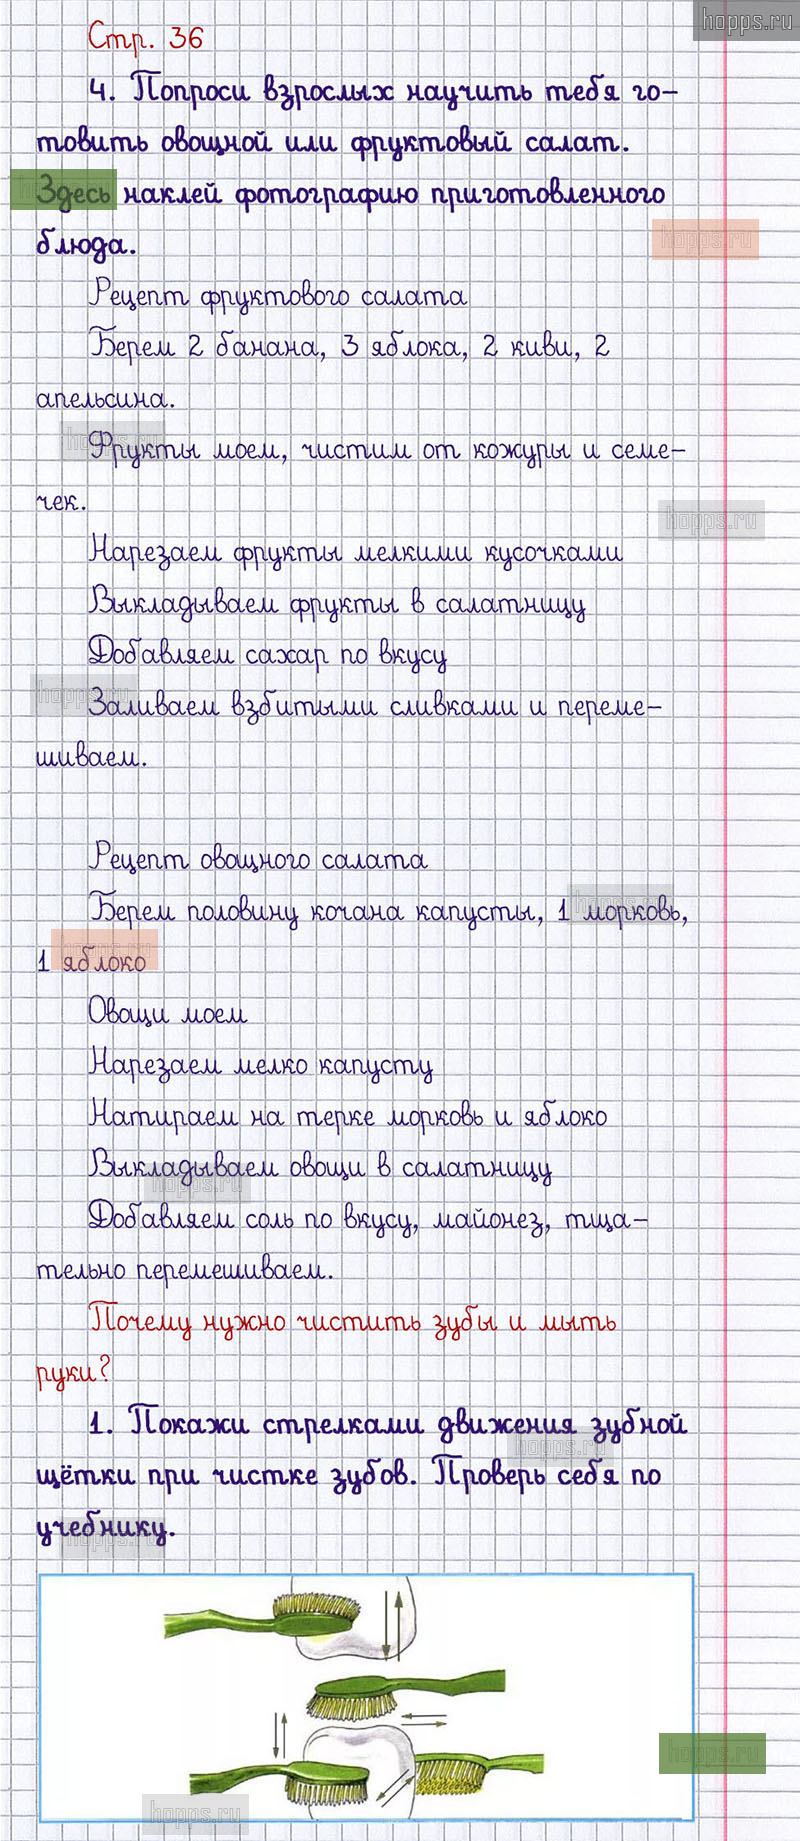 hopps.ru
Стр. 36
4. Попроси взрослых научить тебя го-
товить овощной или фруктовый салат.
Здесь наклей фотографию приготовленного
hopps.ru
блюда.
Рецепт фруктового салата
Берем 2 банана, 3 яблока, 2 киви, 2
апельсина.
hopps.ru
Фрукты моем, чистим от кожуры и семе-
чек.
hopps.ru
Нарезаем фрукты мелкими кусочками
Выкладываем фрукты в салатницу
Добавляем сахар по вкусу
hopps.ru
Заливаем взбитыми сливками и переме-
шиваем.
Рецепт овощного салата
hopps.ru
Берем половину кочана капусты, 1 морковь,
hopps.ru
1 яблоко
Овощи моем
Нарезаем мелко капусту
Натираем на терке морковь и яблоко
Выкладываем овощи в салатницу
hopps.ru
Добавляем соль по вкусу, майонез, тща-
тельно перемешиваем.
Почему нужно чистить зубы и мыть
руки?
1. Покажи стрелками движения зубной
hopps.ru
щётки при чистке зубов. Проверь себя по
учебнику.
hopps.ru
hopps.ru
hopps.ru